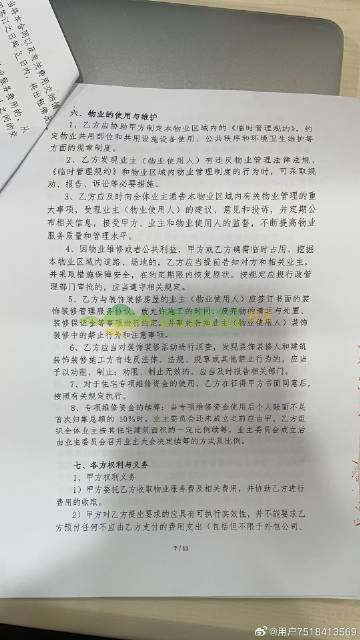 六、物业的使用与维护
1、乙方应协助甲方制定本物业区域内的《临时管理规约》，约
定物业共用部位和共用设施设备使用、公共秩序和环境卫生维护等
方面的规章制度。
2、乙方发现业主（物业使用人）有违反物业管理法律法规、
《临时管理规约》和物业区域内物业管理制度的行为时，可采取规
劝、报告、诉讼等必要措施。
3、乙方应及时向全体业主通告本物业区域内有关物业管理的重
大事项，受理业主（物业使用人）的建议、意见和投诉，并定期公
布相关信息，接受甲方、业主和物业使用人的监督，不断提高物业
服务质量和管理水平。
4、因物业维修或者公共利益，甲方或乙方确需临时占用、挖掘
本物业区域内道路、场地的，乙方应当提前告知对方和相关业主，
并采取措施保障安全，在约定期限内恢复原状。按规定应报行政管
理部门审批的，应当遵守相关规定。
5、乙方与装饰装修房屋的业主（物业使用人）应签订书面的装
饰装修管理服务协议，就允许施工的时间、废弃物的清运与处置、
装修保证金等事项进行约定，并事先告知业主（物业使用人）装饰
装修中的禁止行为和注意事项。
6、乙方应当对装饰装修活动进行巡查，发现装饰装修人和建筑
装饰装修施工方有违反法律、法规、规章或其他禁止行为的，应当
予以劝阻、制止；劝阻、制止无效的，应当及时报告相关部门。
7、对于住宅专项维修资金的使用，乙方在征得甲方书面同意后，
按照有关规定执行。
8、专项维修资金的续筹：当专项维修资金使用后个人账面不足
首次归集总额的10%时，业主委员会还未成立之前应由甲、乙方
组织全体业主按其住宅建筑面积的一定比例续筹，业主委员会成立后
由业主委员会召开业主大会决定续筹的方式及比例。
七、各方权利与义务
1、甲方权利义务
1）甲方委托乙方收取物业服务费及相关费用，并协助乙方进行
费用的收取。
2）甲方对乙方提出要求的应具有可执行实效性，并不能要求乙
方预付任何不应由乙方支付的费用支出（包括但不限于外包公司、
7 / 13
@用户7518413569